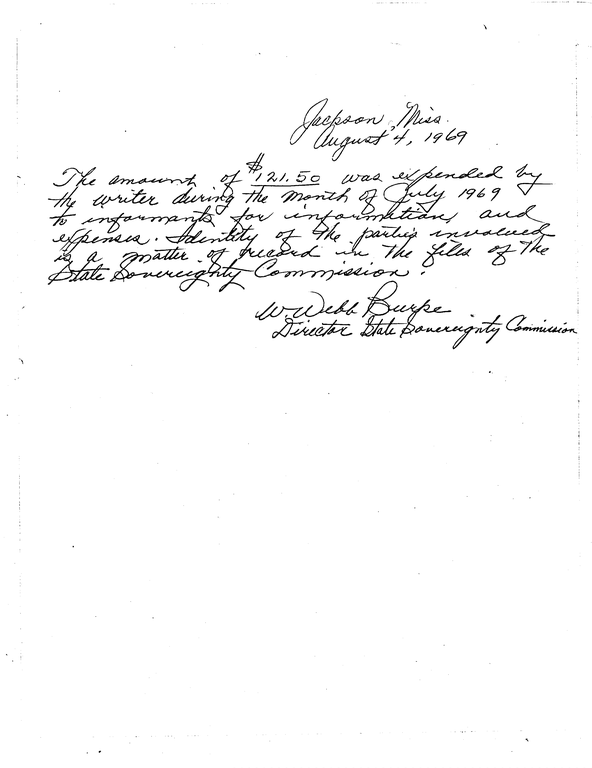 Jackson, Miss.
August 4, 1969
The amount of $121.50 was expended by
the writer during the month of July 1969
to informants for information, and
expenses. Identity of the parties involved
is a matter of record in the files of the
State Sovereignty Commission.
W Webb Burke
Director State Sovereignty Commission